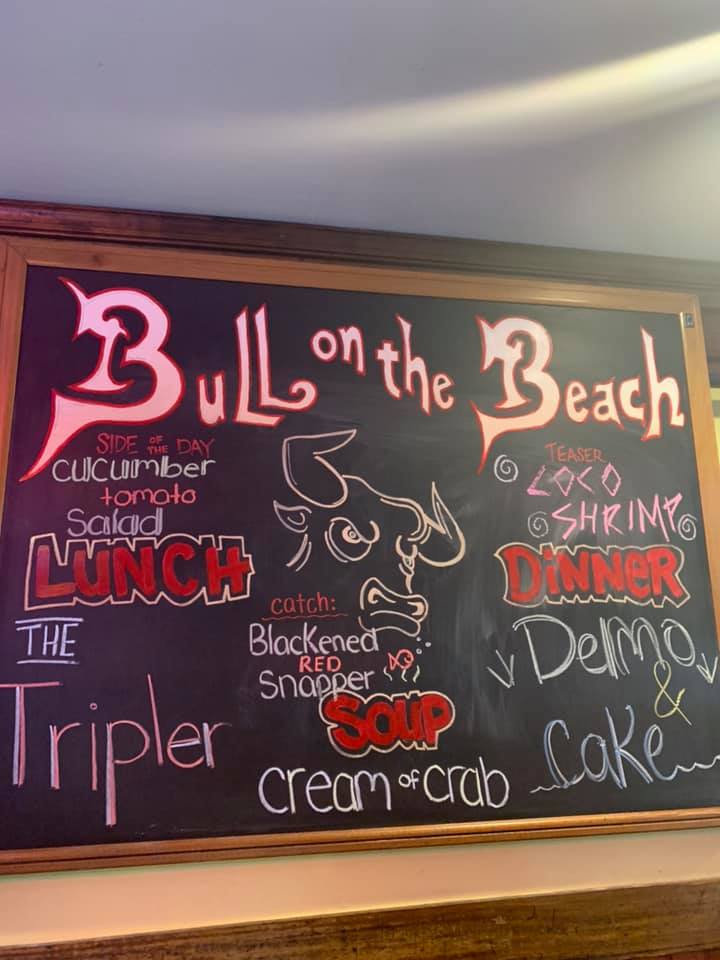 Bull on the Beach
SIDE OF THE DAY
cucumber
tomato
Salad
LUNCH
THE
Tripler
catch:
Blackened
RED
Snapper
SOUP
cream of crab
TEASER
LOCO
SHRIMP
DiNNeR
Delmo
&
Cake